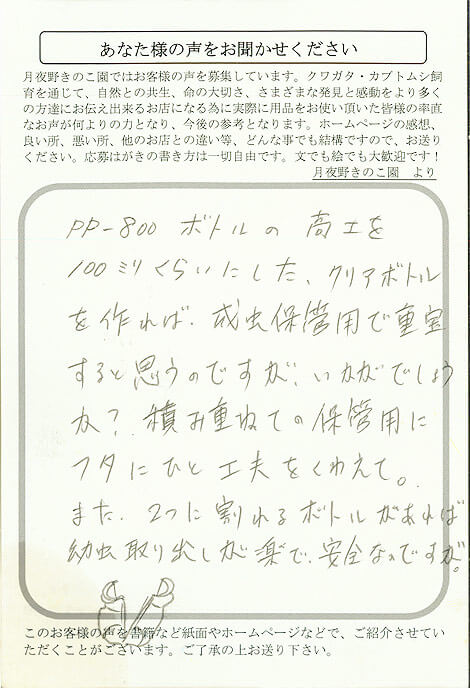 あなた様の声をお聞かせください
月夜野きのこ園ではお客様の声を募集しています。クワガタ・カブトムシ飼
育を通じて、自然との共生、命の大切さ、さまざまな発見と感動をより多く
の方達にお伝え出来るお店になる為に実際に用品をお使い頂いた皆様の率直
なお声が何よりの力となり、今後の参考となります。ホームページの感想、
良い所、悪い所、他のお店との違い等、どんな事でも結構ですので、お送り
ください。応募はがきの書き方は一切自由です。文でも絵でも大歓迎です！
月夜野きのこ園　より
PP-800 ボトルの 高工を
100ミリくらいにした、クリアボトル
を作れば、成虫保管用で重宝
すると思うのですが、いかがでしょう
か？ 積み重ねての保管用に
フタにひと工夫をくわえて。
また、2つに割れるボトルがあれば
幼虫取り出しが楽で、安全なのですが。
このお客様の声を書籍など紙面やホームページなどで、ご紹介させてい
ただくことがございます。ご了承の上お送り下さい。